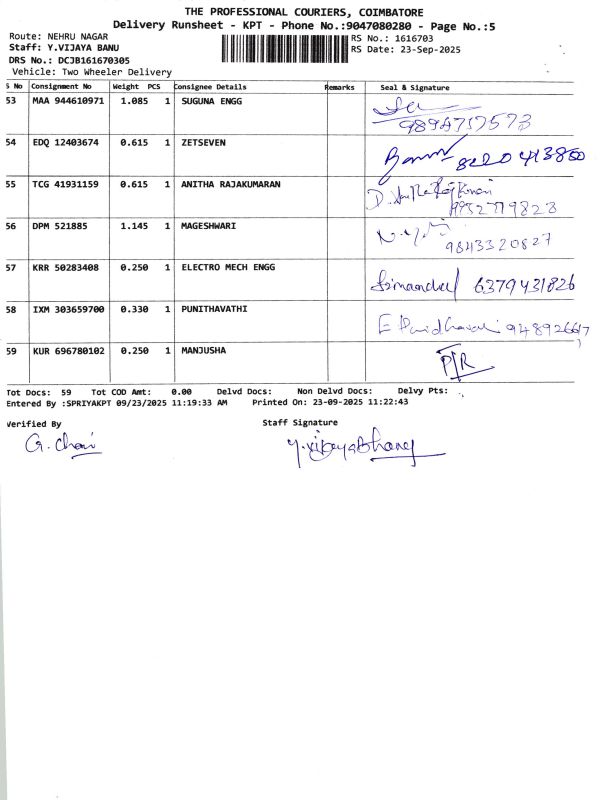 THE PROFESSIONAL COURIERS, COIMBATORE
Delivery Runsheet - KPT - Phone No.:9047080280 - Page No.:5
Route: NEHRU NAGAR
RS No.: 1616703
Staff: Y.VIJAYA BANU
RS Date: 23-Sep-2025
DRS No.: DCJB161670305
Vehicle: Two Wheeler Delivery
S No Consignment No Weight PCS Consignee Details Remarks Seal & Signature
53 MAA 944610971 1.085 1 SUGUNA ENGG
9894757573
54 EDQ 12403674 0.615 1 ZETSEVEN
8220413850
55 TCG 41931159 0.615 1 ANITHA RAJAKUMARAN
9952779823
56 DPM 521885 1.145 1 MAGESHWARI
9843320827
57 KRR 50283408 0.250 1 ELECTRO MECH ENGG
6379431826
58 IXM 303659700 0.330 1 PUNITHAVATHI
59 KUR 696780102 0.250 1 MANJUSHA
Tot Docs: 59 Tot COD Amt: 0.00 Delvd Docs: Non Delvd Docs: Delvy Pts:
Entered By :SPRIYAKPT 09/23/2025 11:19:33 AM Printed On: 23-09-2025 11:22:43
Verified By Staff Signature